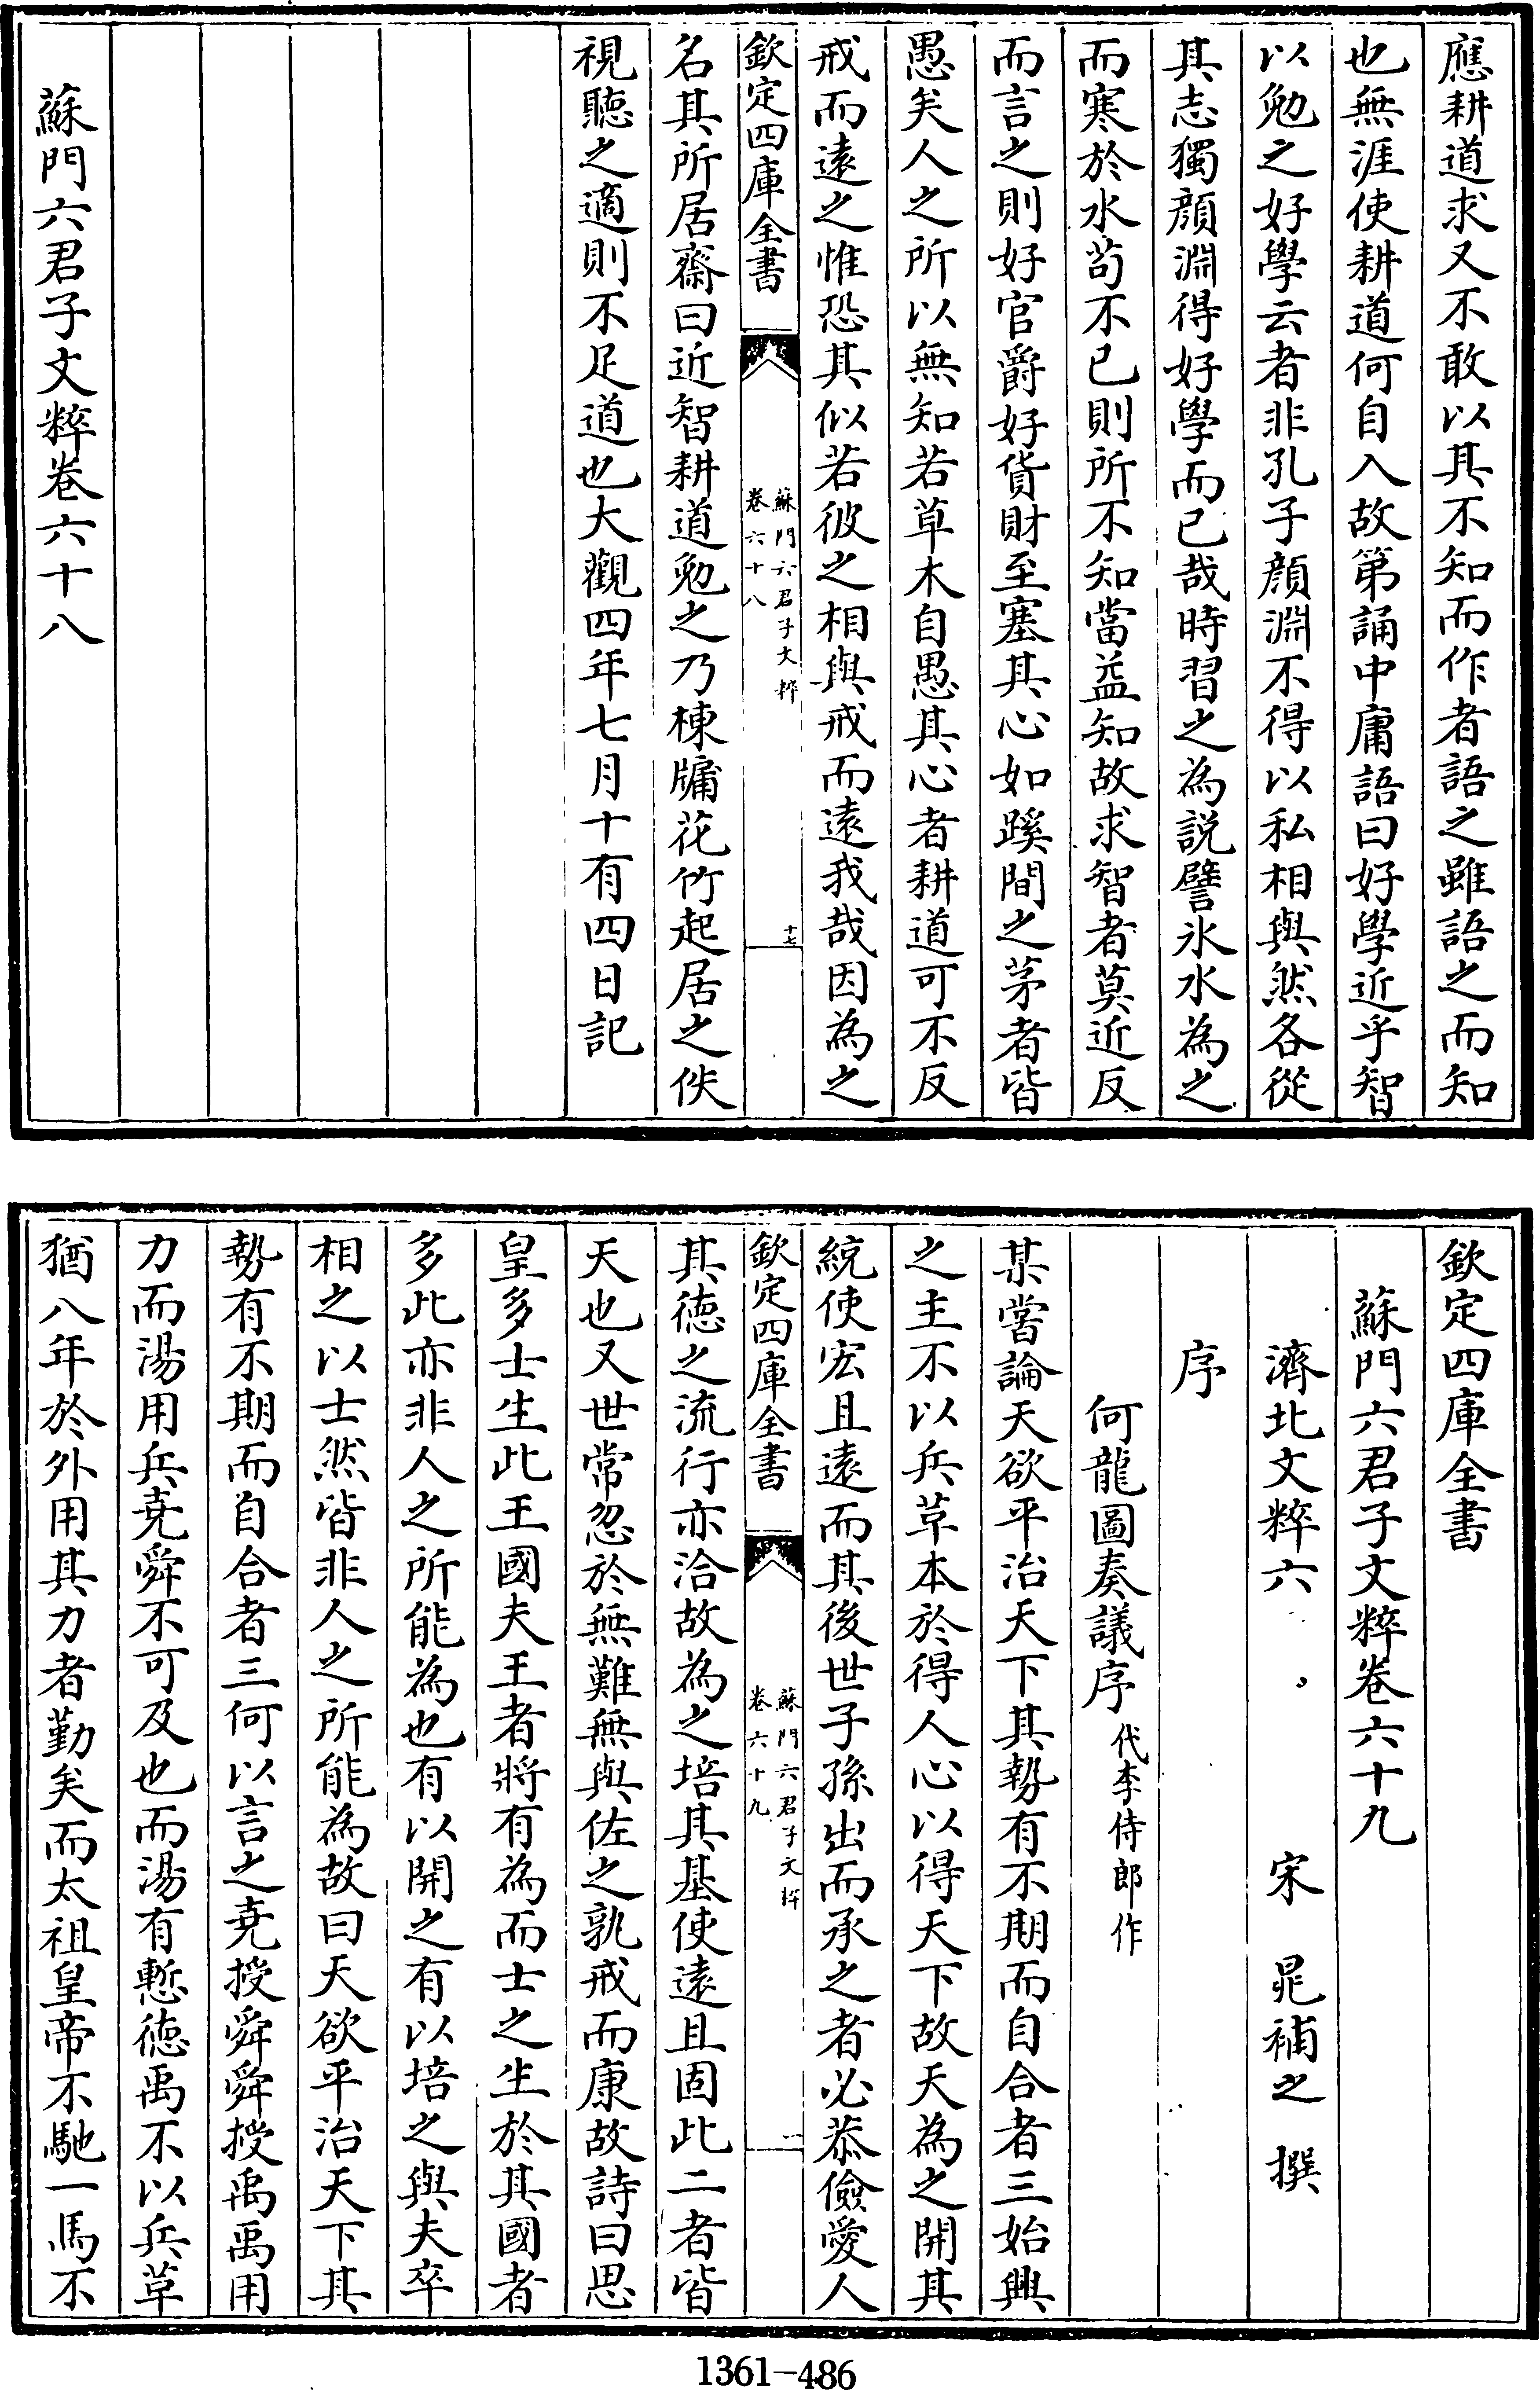 應耕道求又不敢以其不知而作者語之雖語之而知
也無涯使耕道何自入故第誦中庸語曰好學近乎智
以勉之好學云者非孔子顔淵不得以私相與然各從
其志獨顔淵得好學而已哉時習之為説譬氷水為之
而寒於水苟不已則所不知當益知故求智者莫近反
而言之則好官爵好貨財至塞其心如蹊間之茅者皆
愚矣人之所以無知若草木自愚其心者耕道可不反
戒而遠之惟恐其似若彼之相與戒而遠我哉因為之
欽定四庫全書
蘇門六君子文粹
卷六十八
十七
名其所居齋曰近智耕道勉之乃棟牖花竹起居之佚
視聽之適則不足道也大觀四年七月十有四日記
蘇門六君子文粹卷六十八
欽定四庫全書
蘇門六君子文粹卷六十九
濟北文粹六 宋 晁補之 撰
序
何龍圖奏議序代李侍郎作
某嘗論天欲平治天下其勢有不期而自合者三始興
之主不以兵草本於得人心以得天下故天為之開其
統使宏且遠而其後世子孫出而承之者必恭儉愛人
欽定四庫全書
蘇門六君子文粹
卷六十九
一
其徳之流行亦洽故為之培其基使遠且固此二者皆
天也又世常忽於無難無與佐之孰戒而康故詩曰思
皇多士生此王國夫王者將有為而士之生於其國者
多此亦非人之所能為也有以開之有以培之與夫卒
相之以士然皆非人之所能為故曰天欲平治天下其
勢有不期而自合者三何以言之堯授舜舜授禹禹用
力而湯用兵堯舜不可及也而湯有慙徳禹不以兵草
猶八年於外用其力者勤矣而太祖皇帝不馳一馬不
1361-486